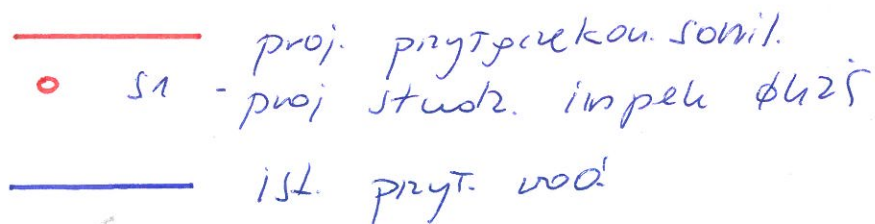 proj. przyłącze kan. sanit.
S1 - proj studz. inspek ø425
ist. przył. wod.